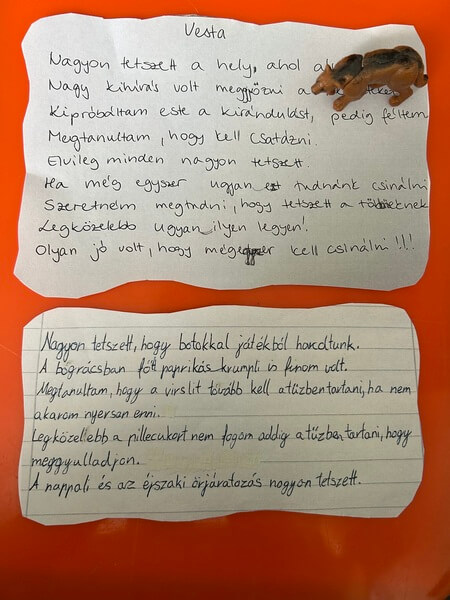 Vesta
Nagyon tetszett a hely, ahol
Nagy kihívás volt meggyőzni a
Kipróbáltam este a kirándulást, pedig féltem
Megtanultam, hogy kell csatázni.
Elvileg minden nagyon tetszett.
Ha még egyszer ugyan ezt tudnánk csinálni
Szeretném megtudni, hogy tetszett a többieknek
Legközelebb ugyan ilyen legyen!
Olyan jó volt, hogy mégegyszer kell csinálni!!!
Nagyon tetszett, hogy botokkal játékból harcoltunk.
A bográcsban főtt paprikás krumpli is finom volt.
Megtanultam, hogy a virslit tovább kell a tűzben tartani, ha nem
akarom nyersen enni.
Legközellebb a pillecukort nem fogom addig a tűzben tartani, hogy
meggyulladjon.
A nappali és az éjszaki őrjáratozás nagyon tetszett.